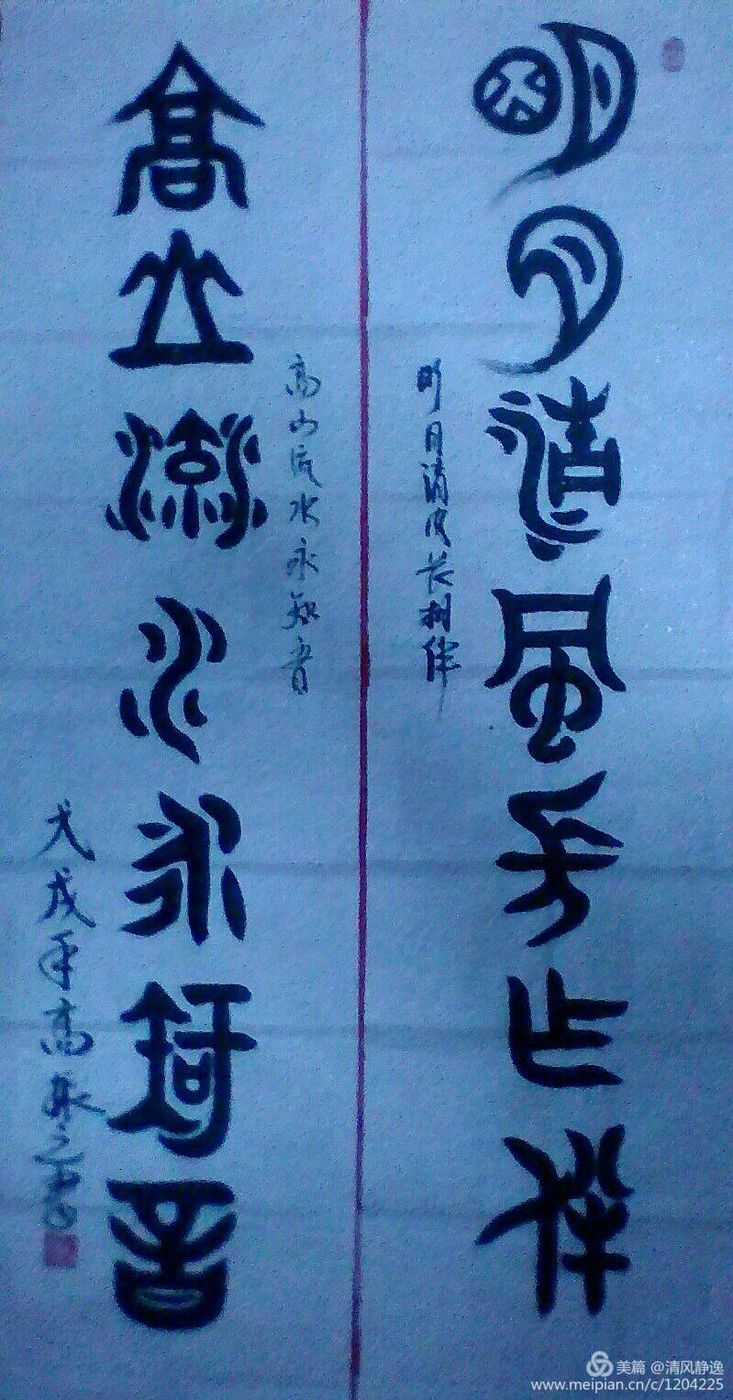 明月清風長伴
明月清风长相伴
高山流水永知音
高山流水永知音
戊戌年高书
美篇 @清风静逸
www.meipian.cn/c/1204225